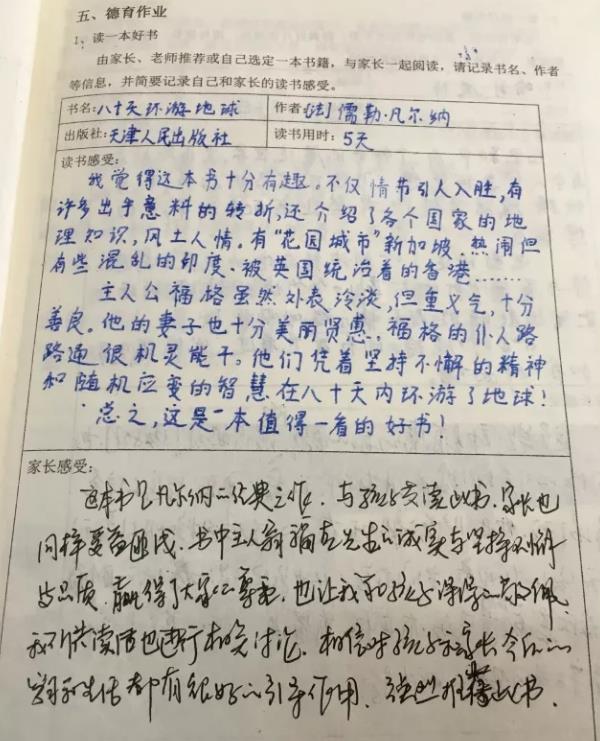 五、德育作业
1、读一本好书
由家长、老师推荐或自己选定一本书籍，与家长一起阅读，请记录书名、作者
等信息，并简要记录自己和家长的读书感受。
书名：八十天环游地球 作者：[法]儒勒·凡尔纳
出版社：天津人民出版社 读书用时：5天
读书感受：
我觉得这本书十分有趣。不仅情节引人入胜，有
许多出乎意料的转折，还介绍了各个国家的地
理知识，风土人情。有“花园城市”新加坡、热闹但
有些混乱的印度、被英国统治着的香港……
主人公福格虽然外表冷淡，但重义气，十分
善良。他的妻子也十分美丽贤惠，福格的仆人路
路通很机灵能干。他们凭着坚持不懈的精神
和随机应变的智慧在八十天内环游了地球！
总之，这是一本值得一看的好书！
家长感受：
这本书是凡尔纳的经典之作，与孩子共读此书，家长也
同样受益匪浅。书中主人翁福克先生的诚实与坚持不懈
的品质，赢得了大家的尊重，也让我和孩子深深的敬佩。
我们共读后也进行相关讨论，相信对孩子和家长今后的
学习和生活都有很好的引导作用。强烈推荐此书。